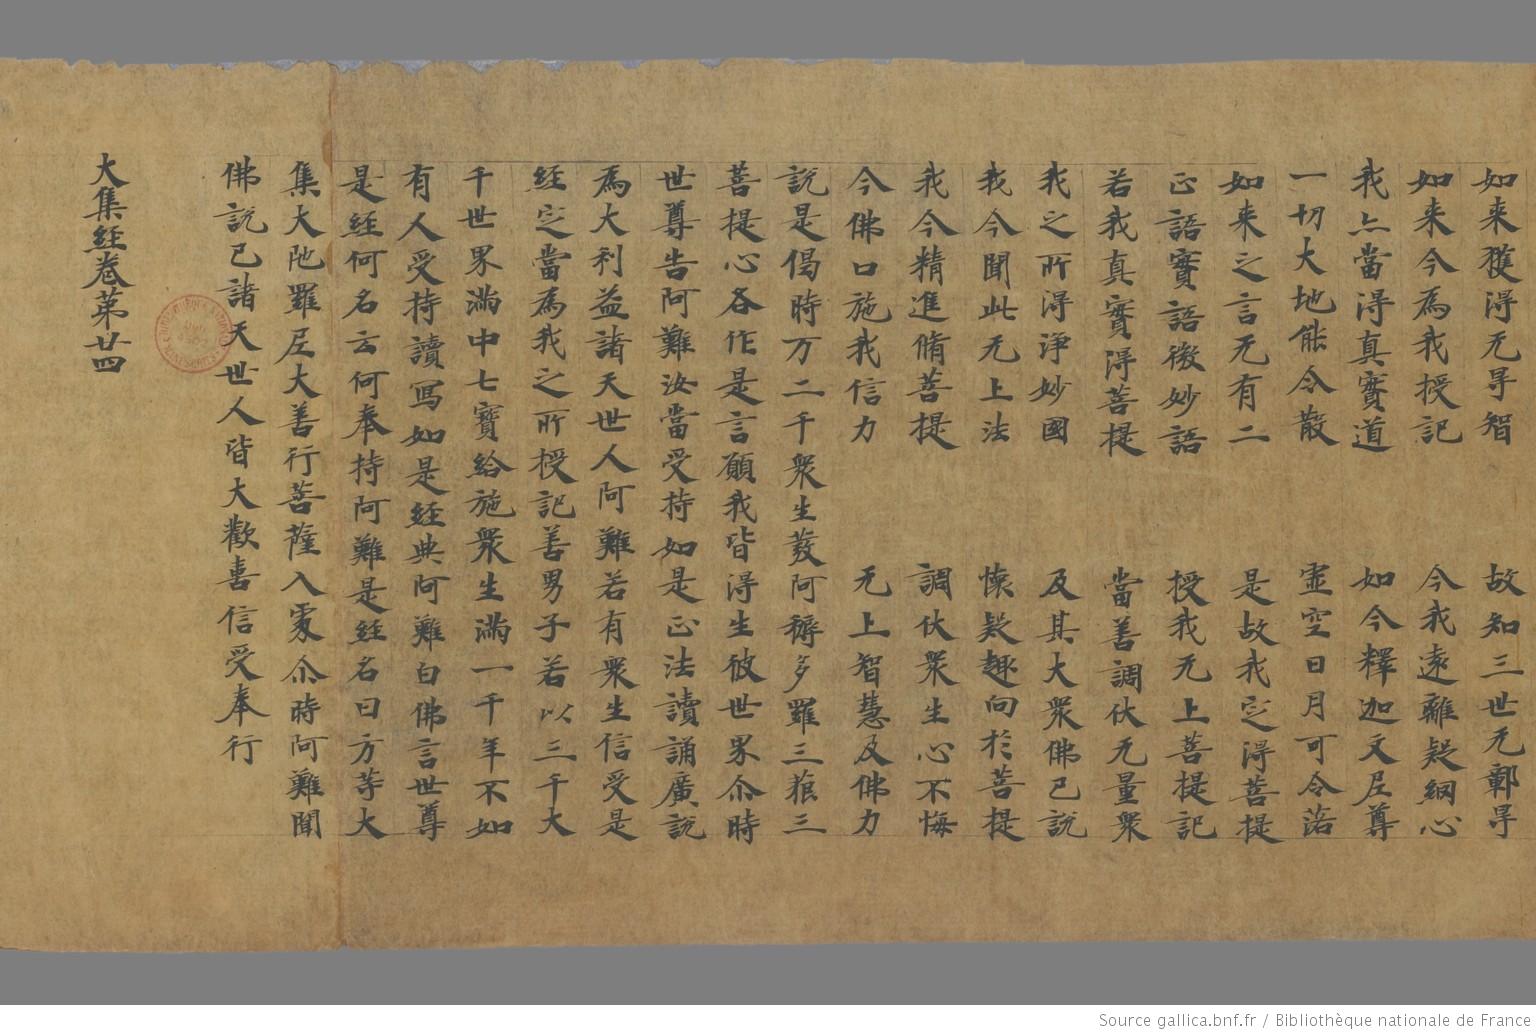 如来獲得无㝵智　故知三世无鄣㝵
如来今為我授記　今我遠離疑網心
我亦當得真實道　如今釋迦文尼尊
一切大地能令散　虛空日月可令落
如来之言无有二　是故我定得菩提
正語實語微妙語　授我无上菩提記
若我真實得菩提　當善調伏无量衆
我之所得淨妙國　及其大衆佛已說
我今聞此无上法　懷疑趣向於菩提
我今精進脩菩提　調伏衆生心不悔
今佛口施我信力　无上智慧及佛力
說是偈時万二千衆生發阿耨多羅三藐三
菩提心各作是言願我皆得生彼世界尒時
世尊告阿難汝當受持如是正法讀誦廣說
為大利益諸天世人阿難若有衆生信受是
経定當為我之所授記善男子若以三千大
千世界滿中七寶給施衆生滿一千年不如
有人受持讀寫如是経典阿難白佛言世尊
是経何名云何奉持阿難是経名曰方等大
集大陁羅尼大善行菩薩入處尒時阿難聞
佛說已諸天世人皆大歡喜信受奉行
大集経卷第廿四
Source gallica.bnf.fr / Bibliothèque nationale de France